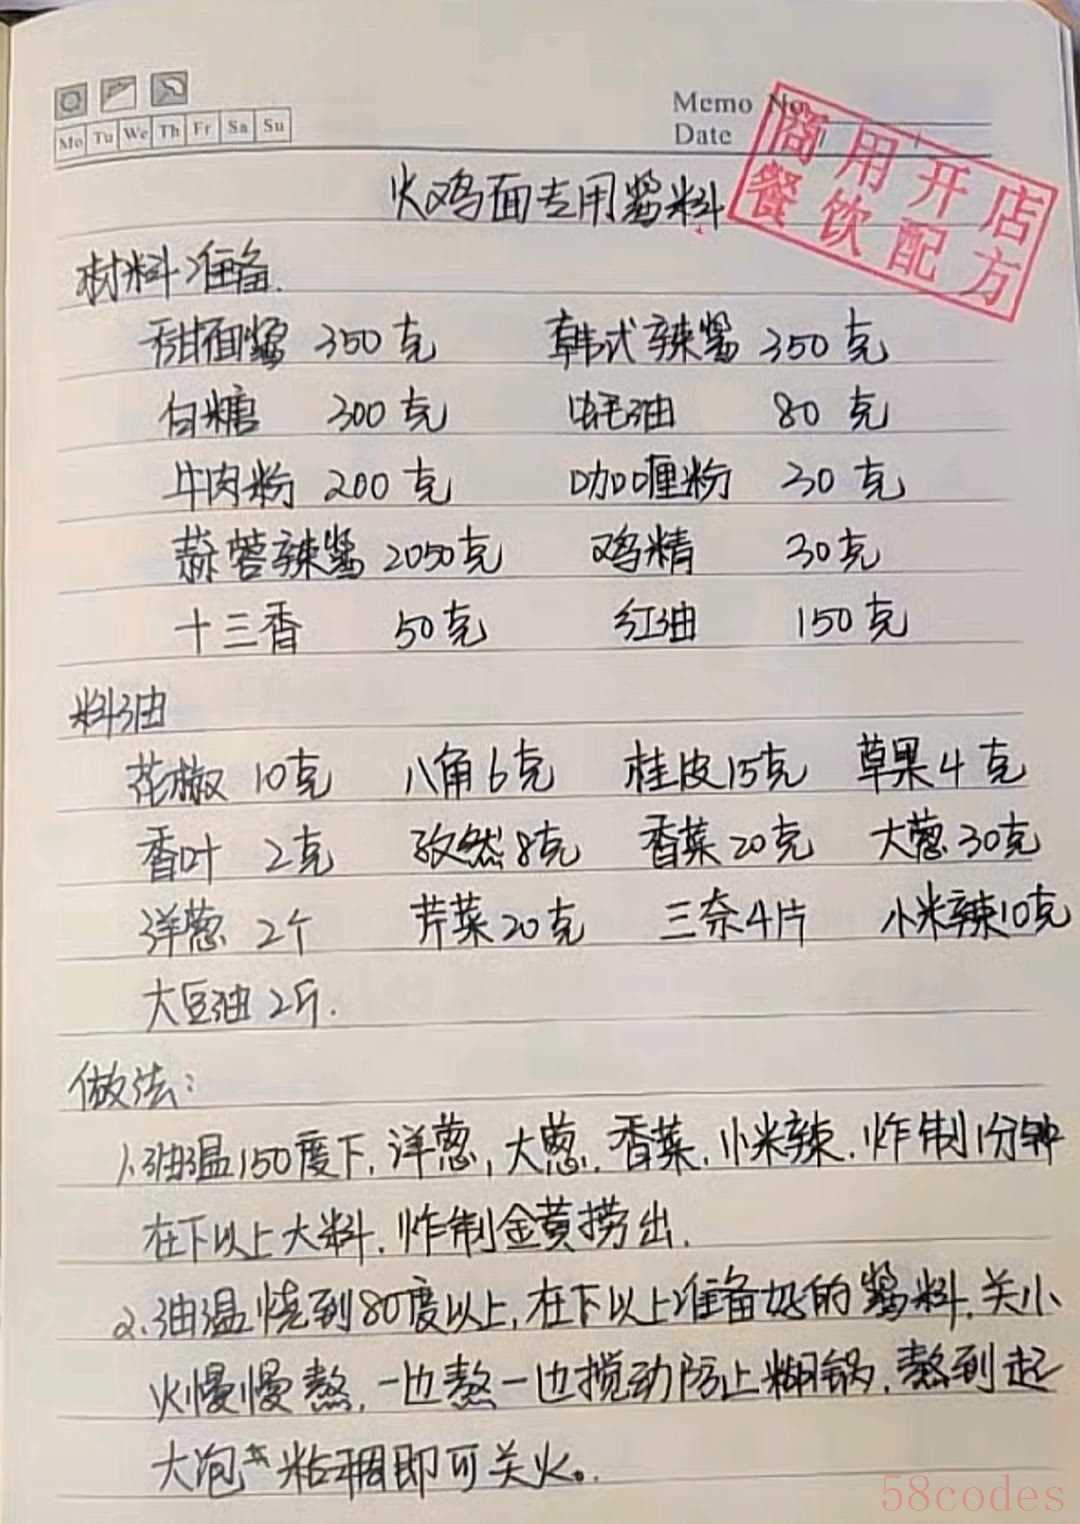 Mo Tu We Th Fr Sa Su
Memo No.
Date / /
商用开店
餐饮配方
火鸡面专用酱料
材料准备.
甜面酱 350克 韩式辣酱 350克
白糖 300克 蚝油 80克
牛肉粉 200克 咖喱粉 30克
蒜蓉辣酱 2050克 鸡精 30克
十三香 50克 红油 150克
料油
花椒 10克 八角6克 桂皮15克 草果4克
香叶 2克 孜然8克 香菜20克 大葱30克
洋葱 2个 芹菜20克 三奈4片 小米辣10克
大豆油 2斤.
做法:
1.油温150度下,洋葱,大葱,香菜,小米辣,炸制1分钟
在下以上大料,炸制金黄捞出.
2.油温烧到80度以上,在下以上准备好的酱料,关小
火慢慢熬,一边熬一边搅动防止糊锅,熬到起
大泡 粘稠即可关火。
58codes